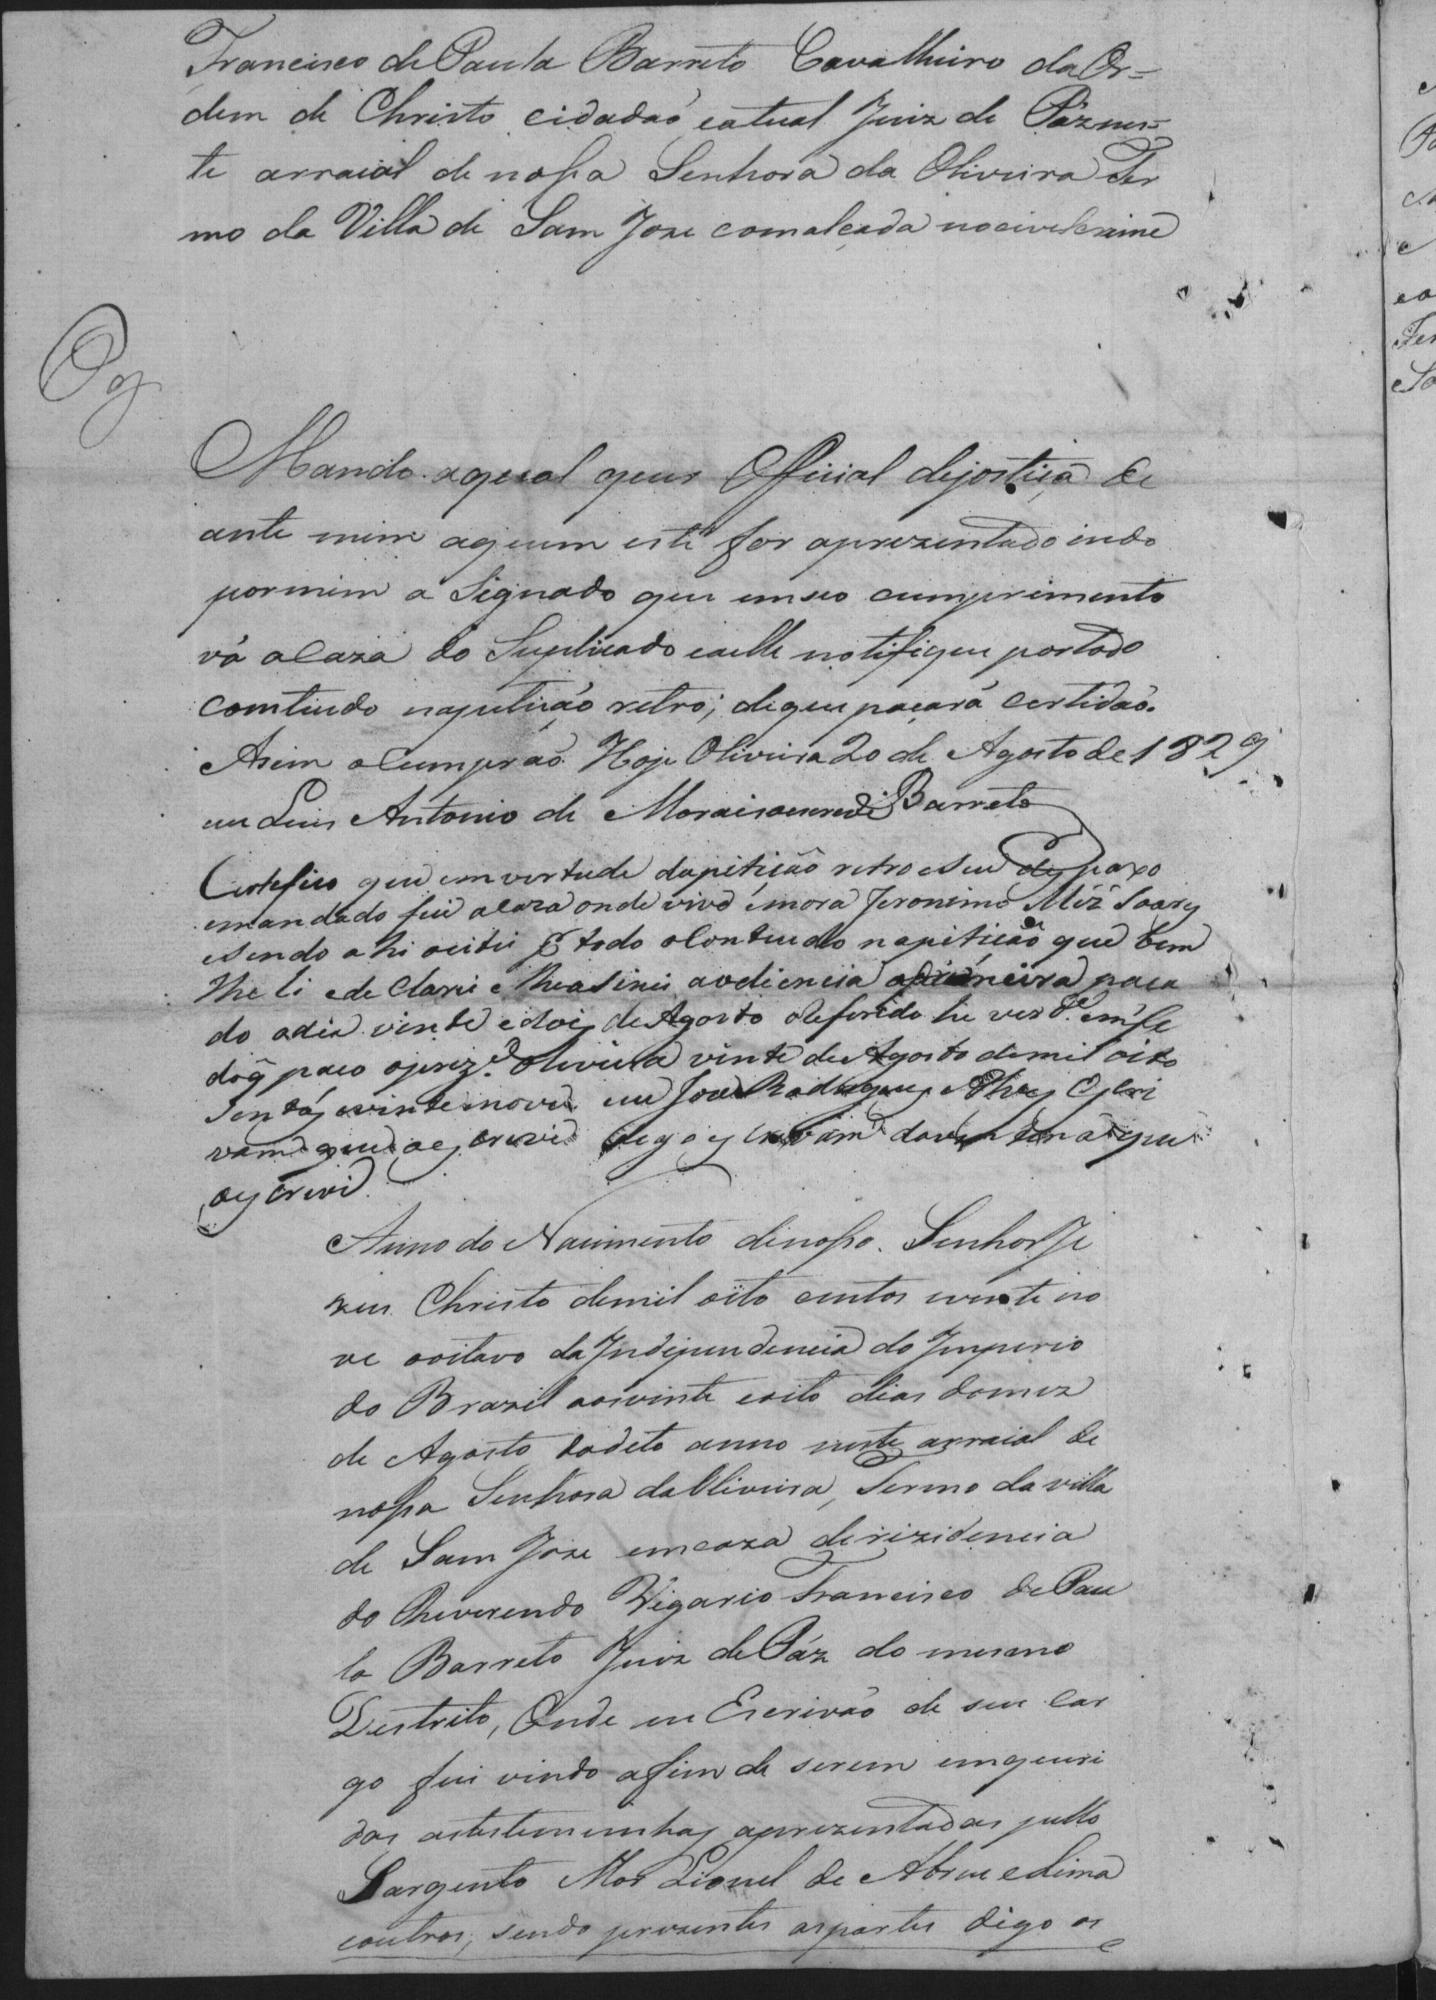 Francisco de Paula Barreto Cavalheiro da Or=
dem de Christo cidadaõ eatual Juiz de Páz nes=
te arraial de nossa Senhora da Oliveira Ter
mo da Villa de Sam Joze comalçada nocivel crime
Mando aqual quer Official dejostiça de
ante mim aquem este for aprezentado indo
pormim a Signado que emseo cumprimento
vá acaza do Suplicado eaelle notifique portodo
comtiudo napetição retro; dequepaçará certidaõ.
Asim ocumpraõ Hoje Oliveira 20 de Agosto de 1829
eu Luis Antonio de Morais oescrevi Barreto
Certefico que em vertude dapitição retro eseu despaxo
emandado fui acaza onde vive emora Jeronimo Miz Soares
esendo ahi ocitei p todo oContiudo napitiçaõ que bem
lhe li edeClarei elheasinei audiencia aprimeira paca
do odia vinte edois de Agosto oReferido he verde. emfe
doq paco oprezte. Oliveira vinte de Agosto demil oito
Sentos evinte nove eu Joze Rodrigues Alves Escri
vam que oescrevi digo escrivam da vintena que
oescrevi.
Anno do Nacimento denosso Senhor Je
zus Christo demil oito centos vinte no
ve ooitavo da Independencia do Imperio
do Brazil aosvinte eoito dias domez
de Agosto doditto anno neste arraial de
nossa Senhora daOliveira, Termo da villa
de Sam Joze emcaza derizidencia
do Reverendo Vigario Francisco de Pau
la Barreto Juiz de Páz do mesmo
Destrito, Onde eu Escrivão de seu car
go fui vindo afim de serem emqueri
das astestemunhas aprezentadas pello
Sargento Mor Lionel de Abreu eLima
eoutros, sendo prezentes aspartes digo as